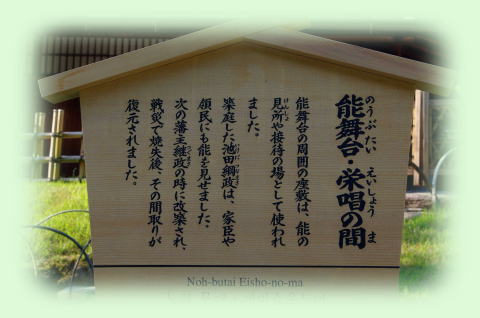 のうぶたい えいしょう ま
能舞台・栄唱の間
能舞台の周囲の座敷は、能の
けんしょ
見所や接待の場として使われ
ました。
築庭した池田綱政は、家臣や
領民にも能を見せました。
次の藩主継政の時に改築され、
戦災で焼失後、その間取りが
復元されました。
Noh-butai Eisho-no-ma